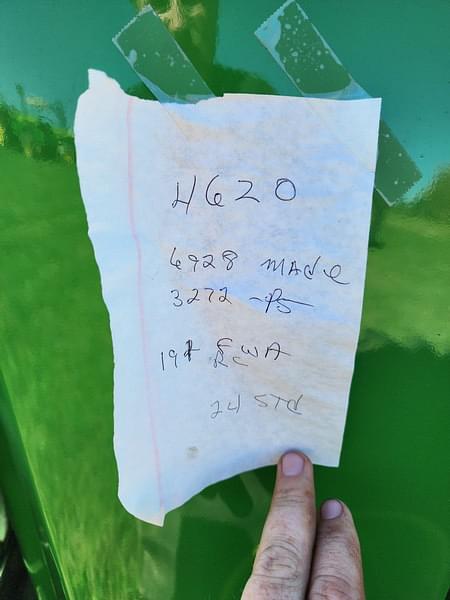 4620
6928 MAde
3272 - PS
FWA
RC
24 STd